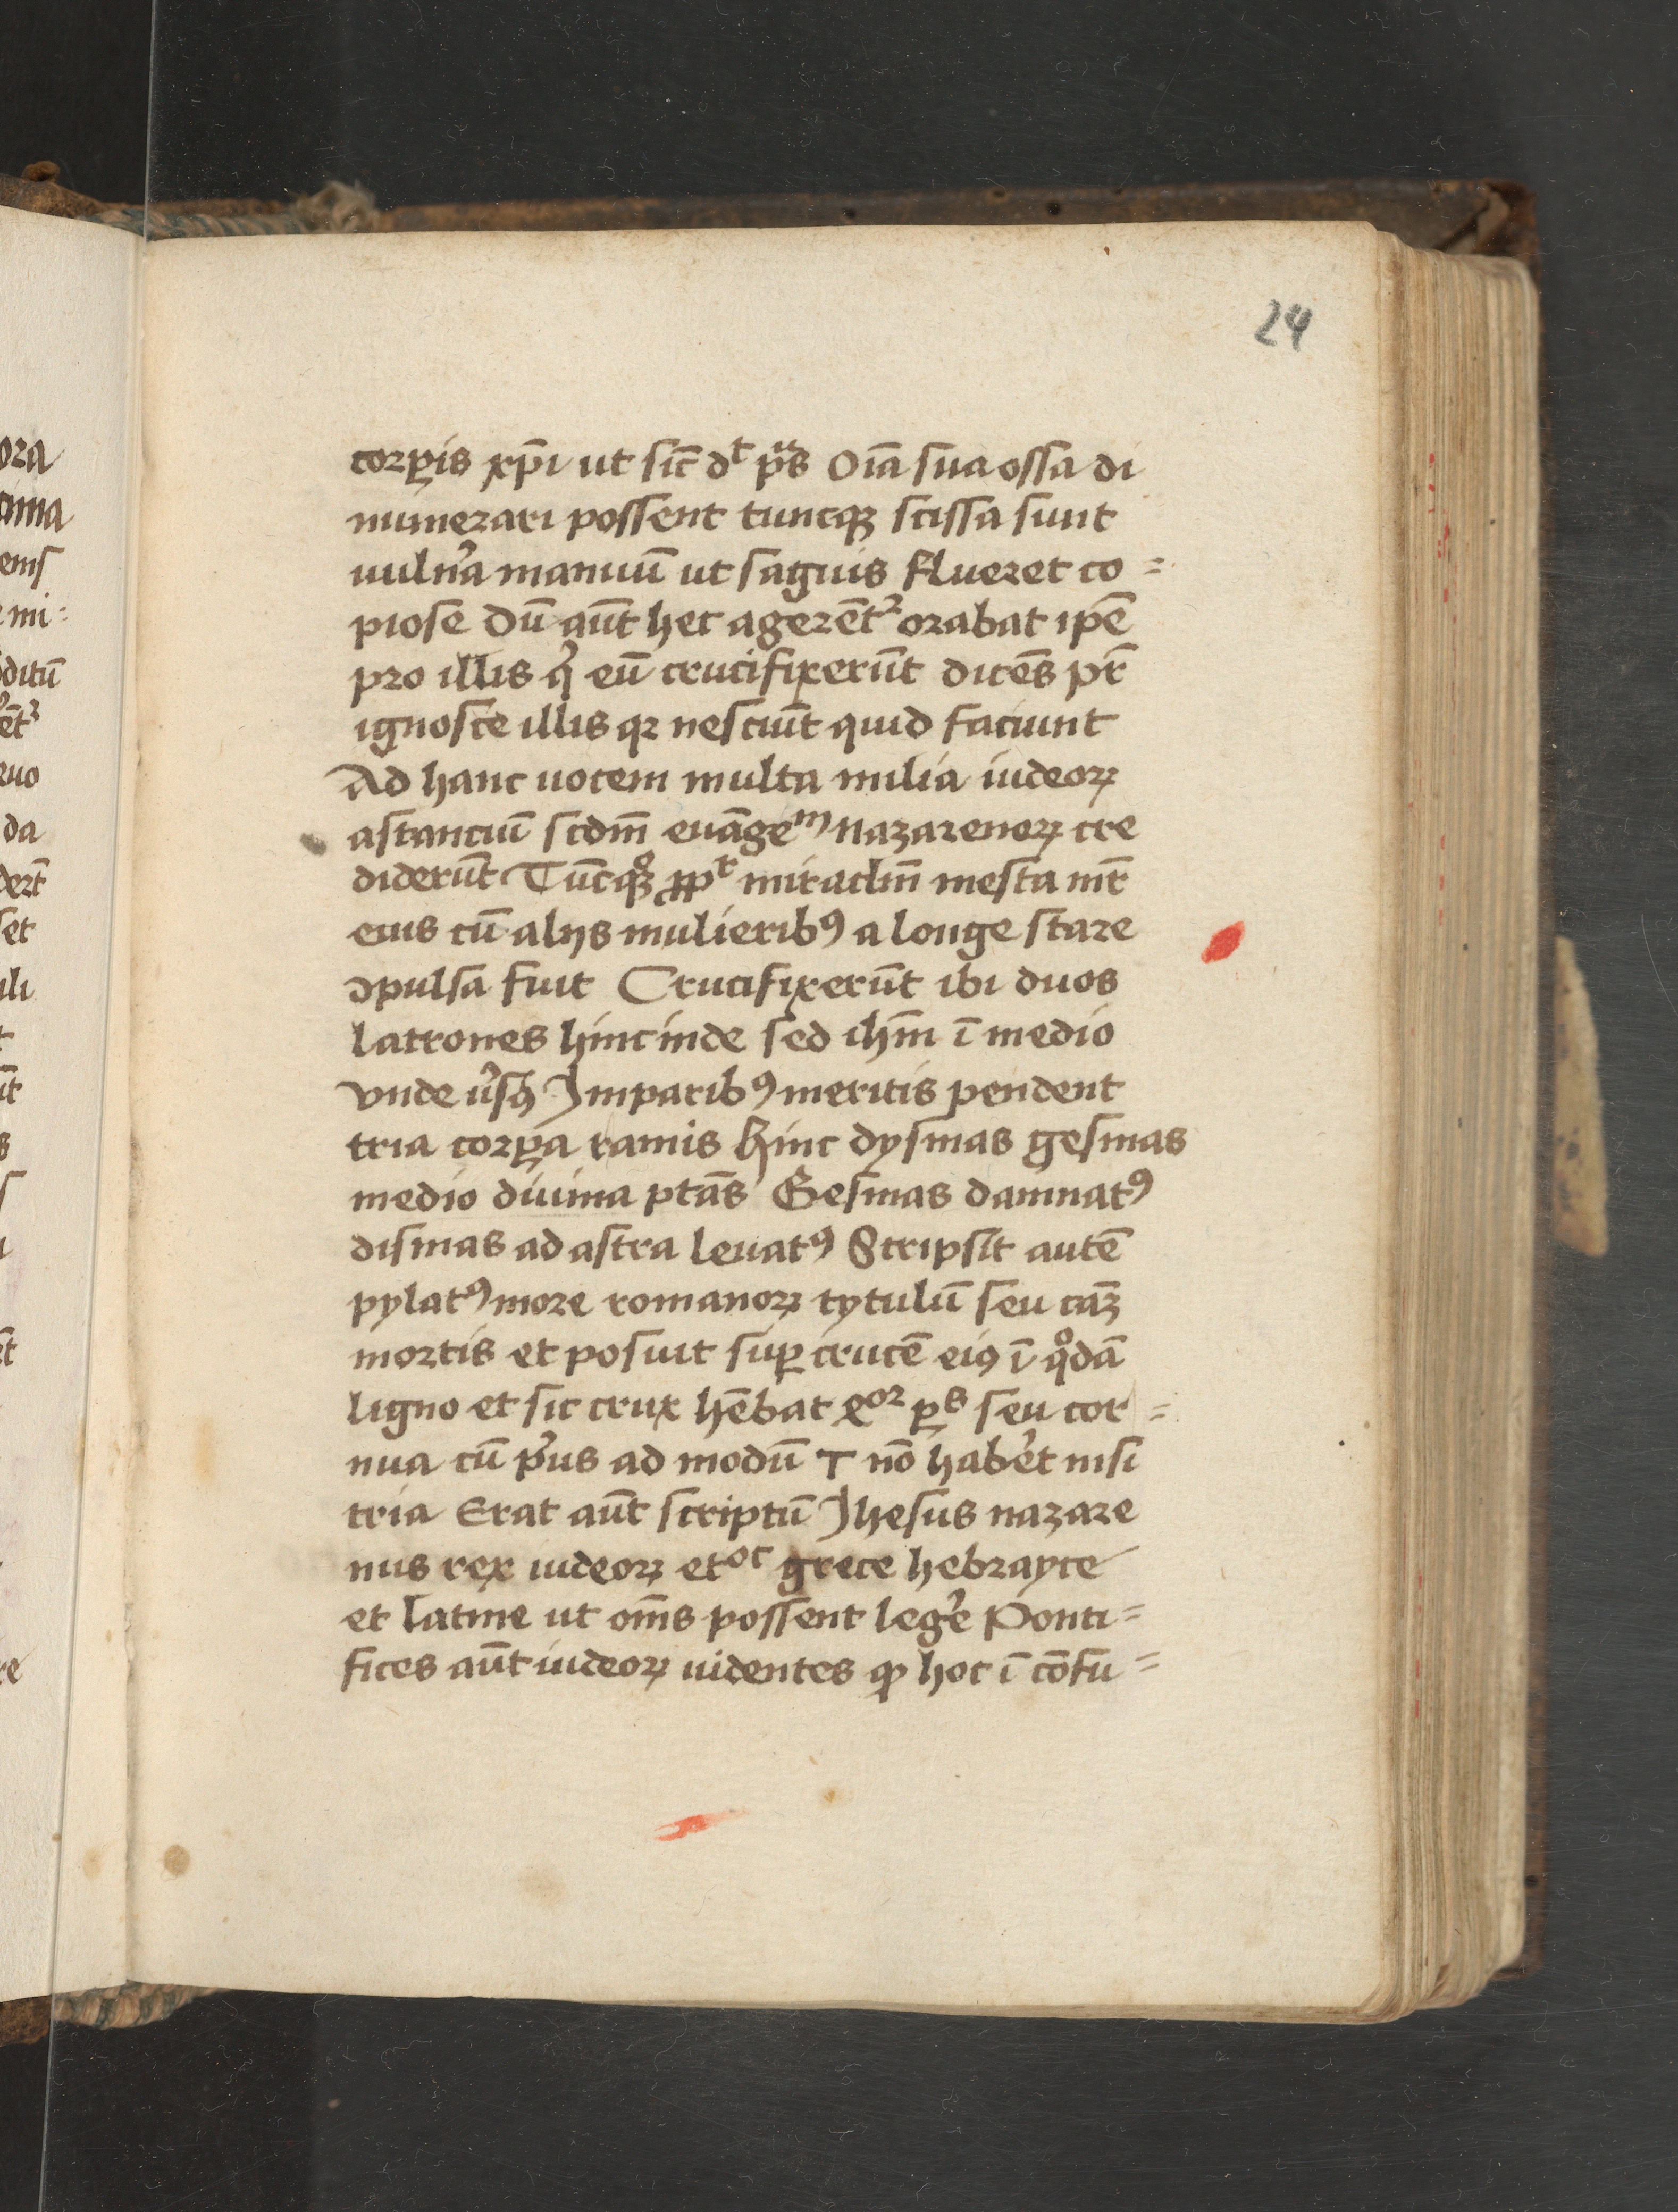 24
corꝑis xp̄i ut sic̄ dᵗ pᷓs Oīa sua ossa di
numerari possent tuncqꝫ scissa sunt
uuln̉a manuū ut saguis flueret co=
piose Dū aūt hec agerēt᷑ orabat ip̄e
pro illis q̉ eū crucifixerūt dicēs pr̄
ignosce illis qꝛ nesciūt quid faciunt
Ad hanc uocem multa milia iudeoꝝ
astanciū scdm̄ euāgeᵐ nazarenoꝝ cre
diderūt Tūcqꝫͦ ꝓpᵗ miraclm̄ mesta mr̄
eius cū alijs mulieribꝰ a longe stare
ꝯpulsa fuit Crucifixerūt ibi duos
latrones hinc inde sed ihm̄ ī medio
vnde ůsꝰ Imparibꝰ meritis pendent
tria corꝑa ramis hinc dysmas gesmas
medio diuina ptās Gesmas damnatꝰ
dismas ad astra leuatꝰ Scripsit autē
pylatꝰ more romanoꝝ tytulū seu cāꝫ
mortis et posuit suꝑ crucē eiꝰ ī qͦdā
ligno et sic crux hēbat ꝗᵒʳ ꝑˢ seu cor=
nua cū p̉us ad modū T nō hab̉et nisi
tria Erat aūt scriptū Jhesus nazare
nus rex iudeoꝝ et oc grece hebrayce
et latine ut om̄s possent leg̉e Ponti=
fices aūt iudeoꝝ uidentes ꝙ hoc ī cōfu=